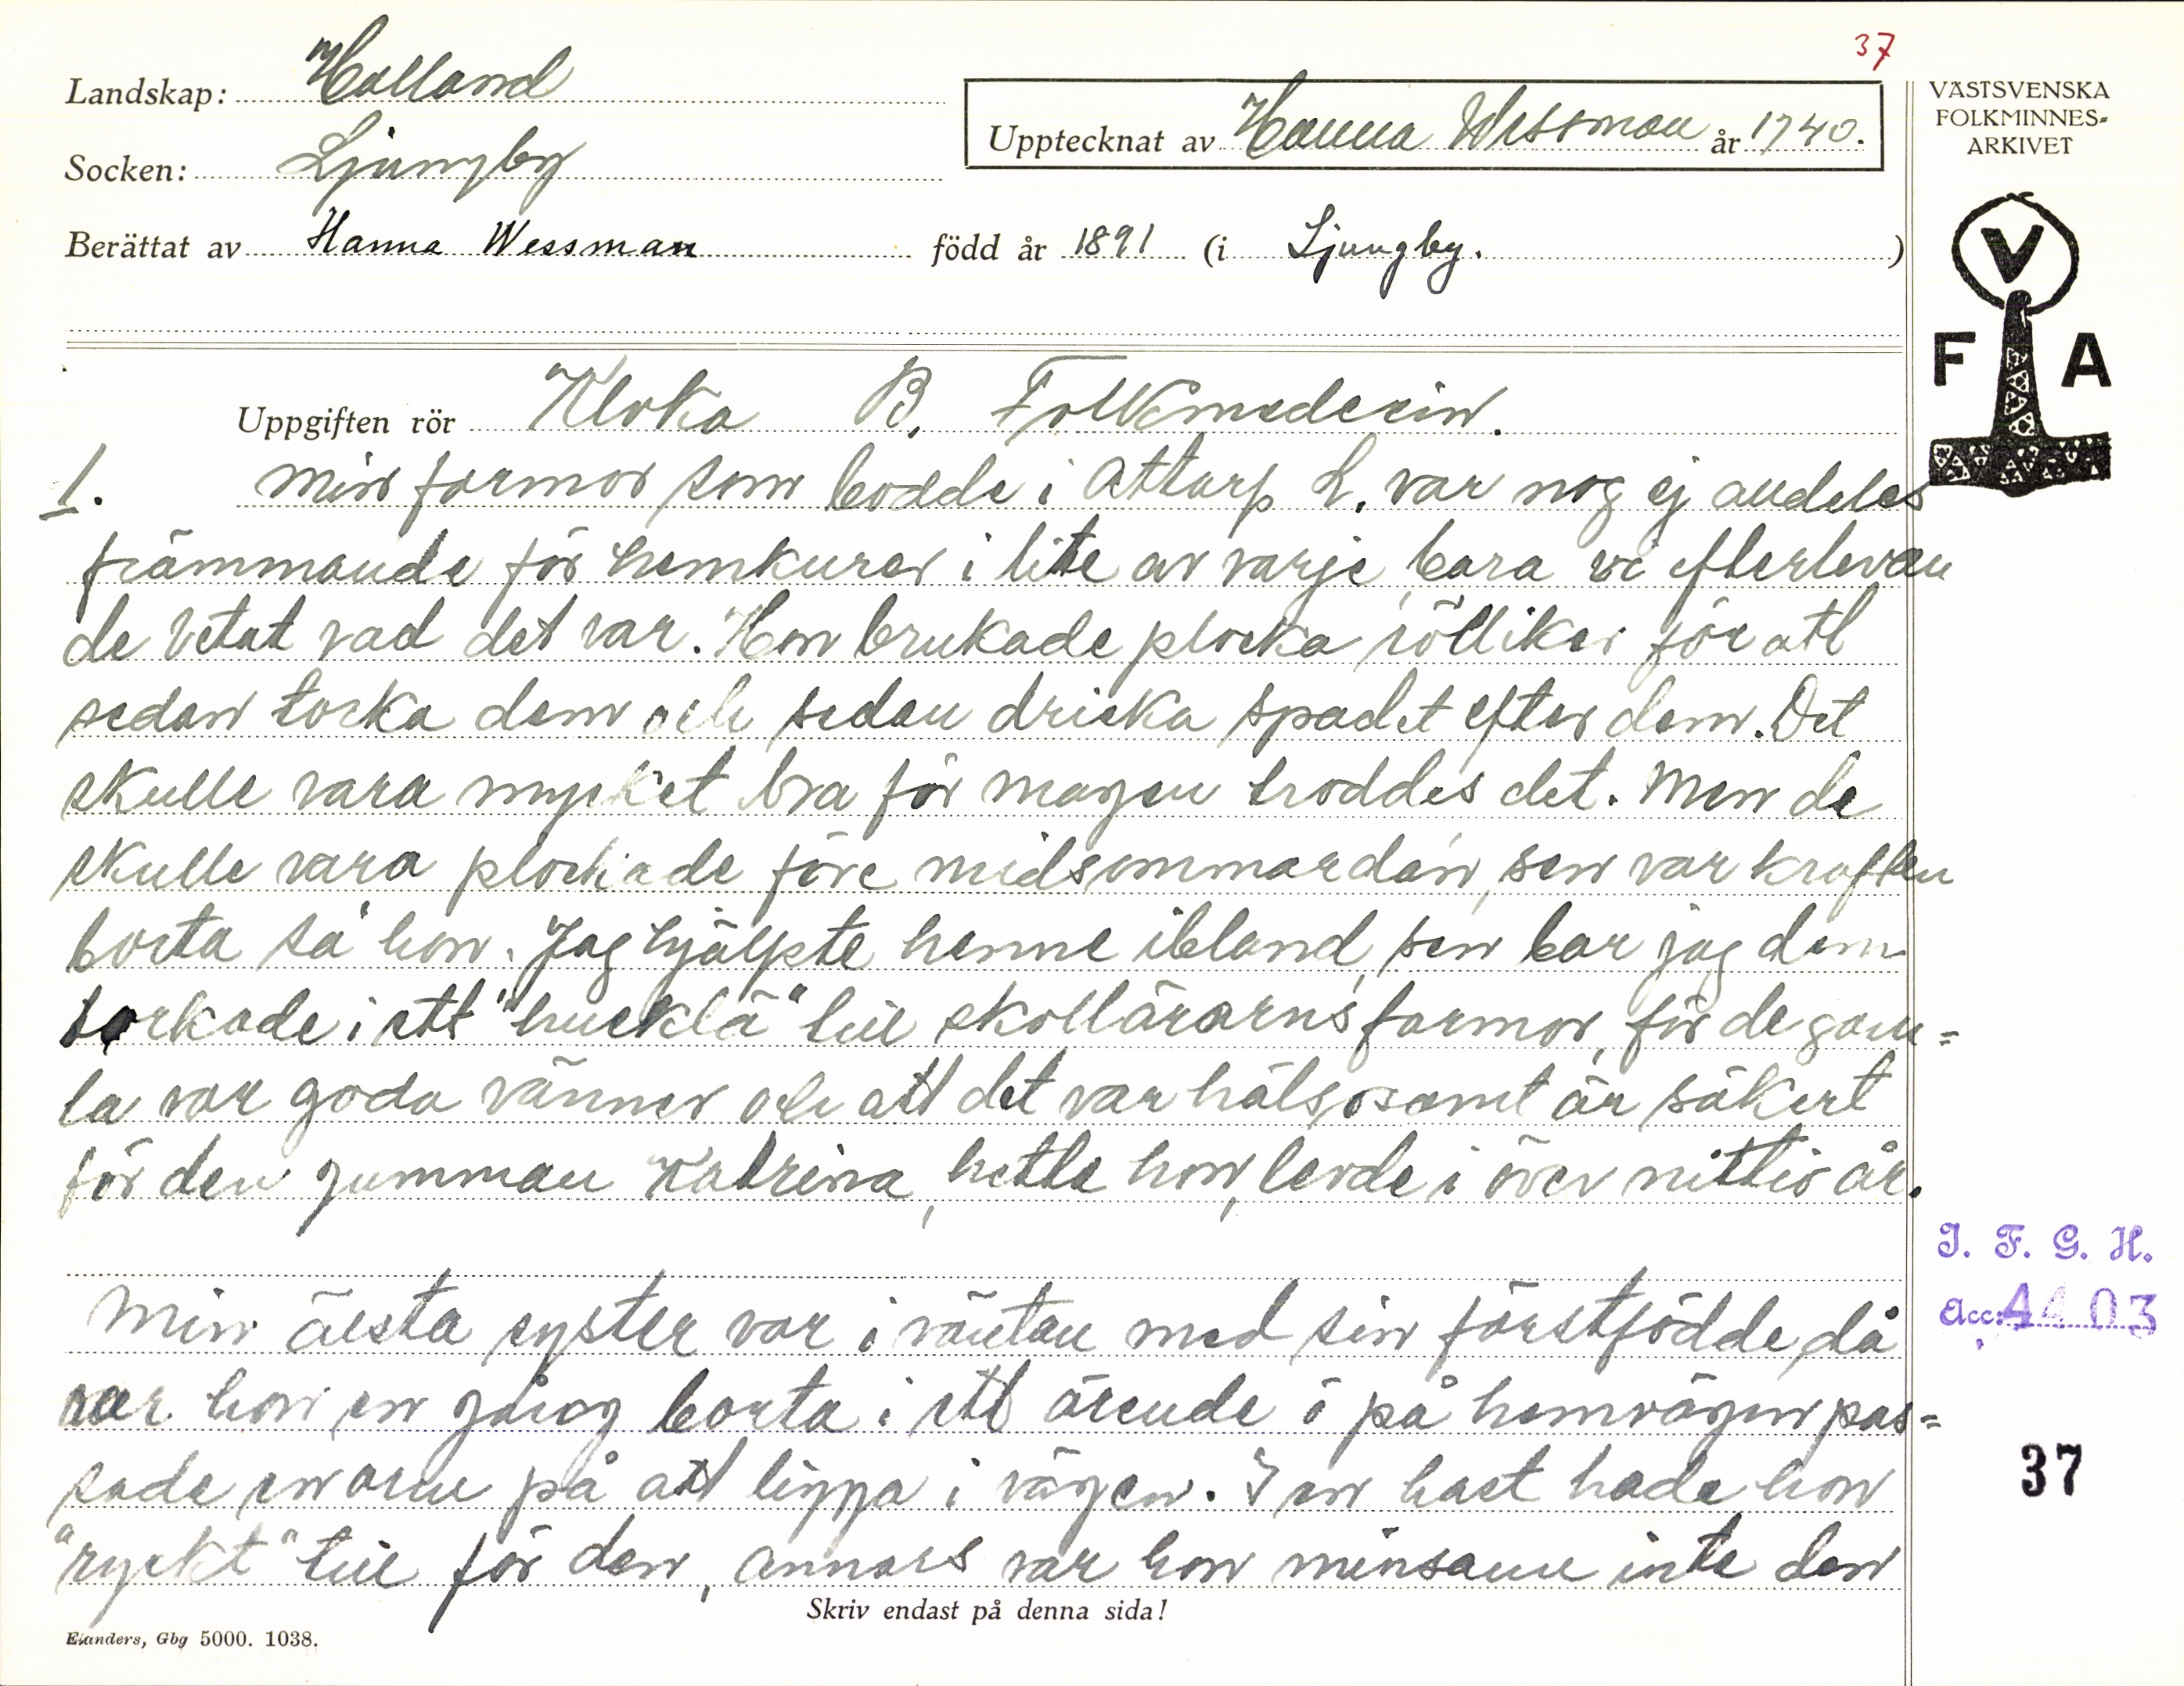 37
Landskap: Halland
Upptecknat av Hanna Wessman år 1940.
VÄSTSVENSKA
FOLKMINNES-
ARKIVET
Socken: Ljungby
Berättat av Hanna Wessman född år 1891 (i Ljungby. )
V
F A
Uppgiften rör Kloka B. Folkmedecin.
1. Min farmor som bodde i Attarp L. var nog ej alldeles
främmande för hemkurer i lite av varje, bara vi efterlevan
de vetat vad det var. Hon brukade plocka rölliker för att
sedan torka dem och sedan dricka spadet efter dem. Det
skulle vara mycket bra för magen troddes det. Men de
skulle vara plockade före midsommardan, sen var kraften
borta sa' hon. Jag hjälpte henne ibland, sen bar jag dem
torkade i ett "hucklä" till skollärarns farmor, för de gam=
la var goda vänner och att det var hälsosamt är säkert
för den gumman Katrina, hette hon, levde i över nittio år.
Min älsta syster var i väntan med sin förstfödde, då
var hon en gång borta i ett ärende ö på hemvägen pas=
sade en orm på att ligga i vägen. I en hast hade hon
"ryckt" till för den, annars var hon minsann inte den
J. F. G. H.
Acc: 4403
37
Skriv endast på denna sida!
Elanders, Gbg 5000. 1038.